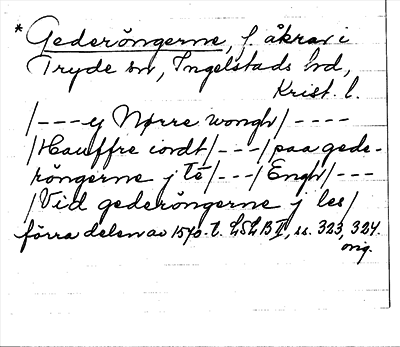 * Gederöngerne, f. åkrar i
Tryde sn, Ingelstads hd,
Krist. l.
/---ej Nørre wongh/----
/Hauffre iordt/---/paa gede-
röngerne j tè/---/Engh/---
/Vid gederöngerne j les/
förra delen av 1570-t. LSLB II, ss. 323, 324.
orig.